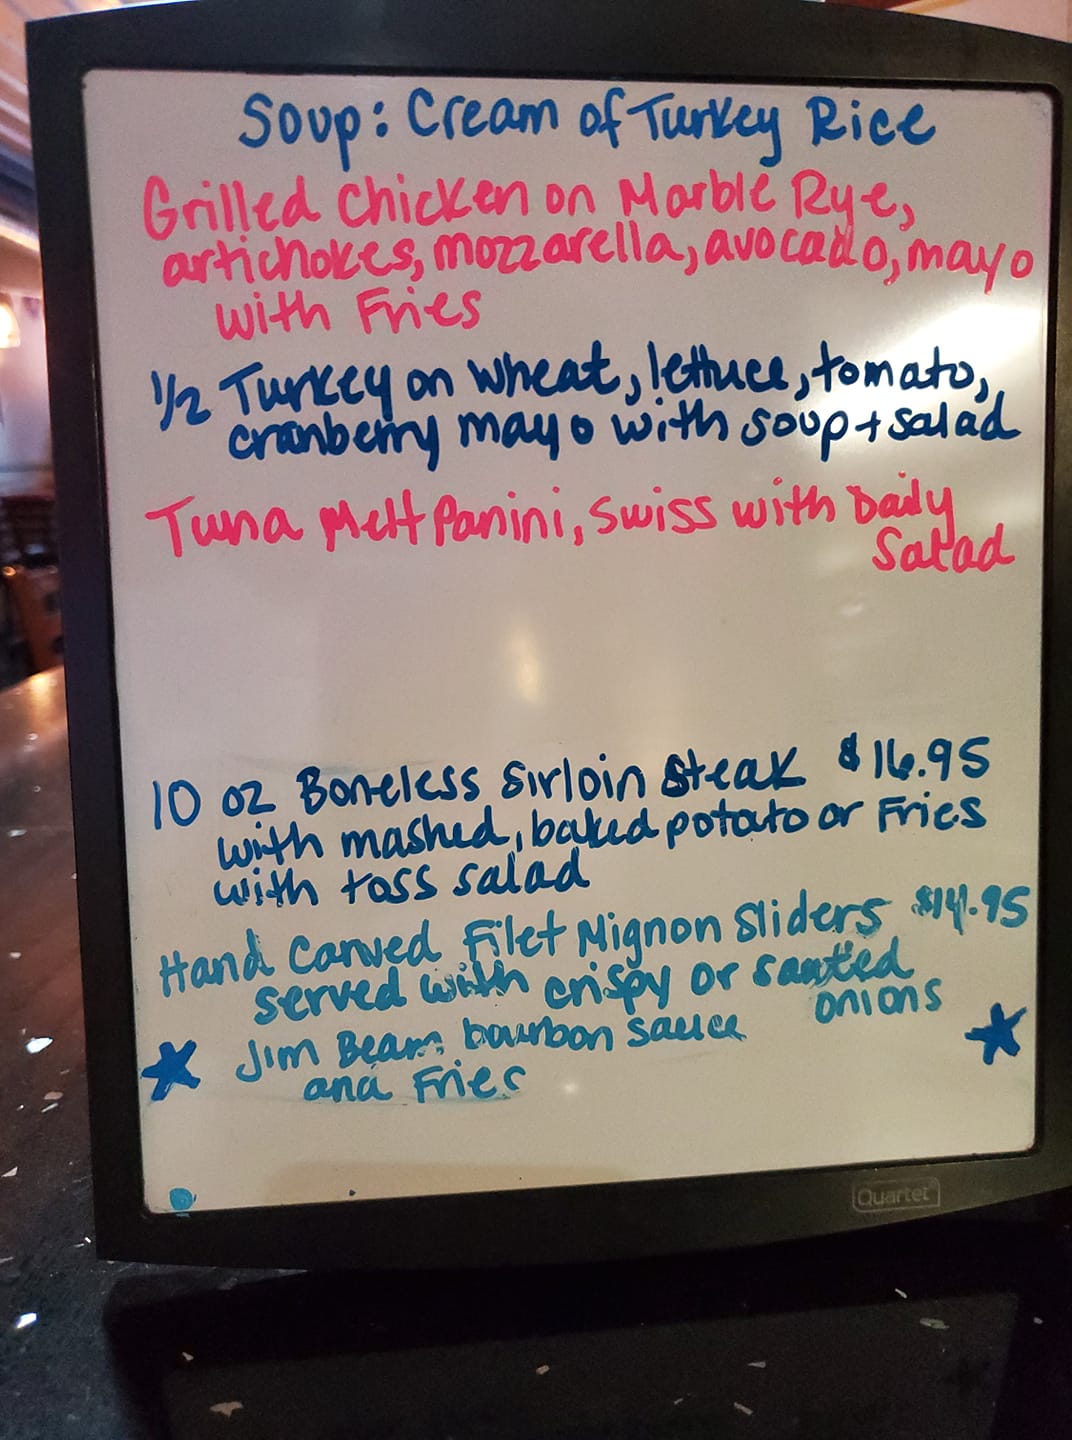 Soup: Cream of Turkey Rice
Grilled Chicken on Marble Rye,
artichokes, mozzarella, avocado, mayo
with Fries
1/2 Turkey on wheat, lettuce, tomato,
cranberry mayo with soup + salad
Tuna Melt Panini, Swiss with Daily
Salad
10 oz Boneless Sirloin Steak $16.95
with mashed, baked potato or Fries
with toss salad
Hand Carved Filet Mignon Sliders $14.95
served with crispy or sauted
onions
Jim Beam bourbon sauce
and Fries
Quartet